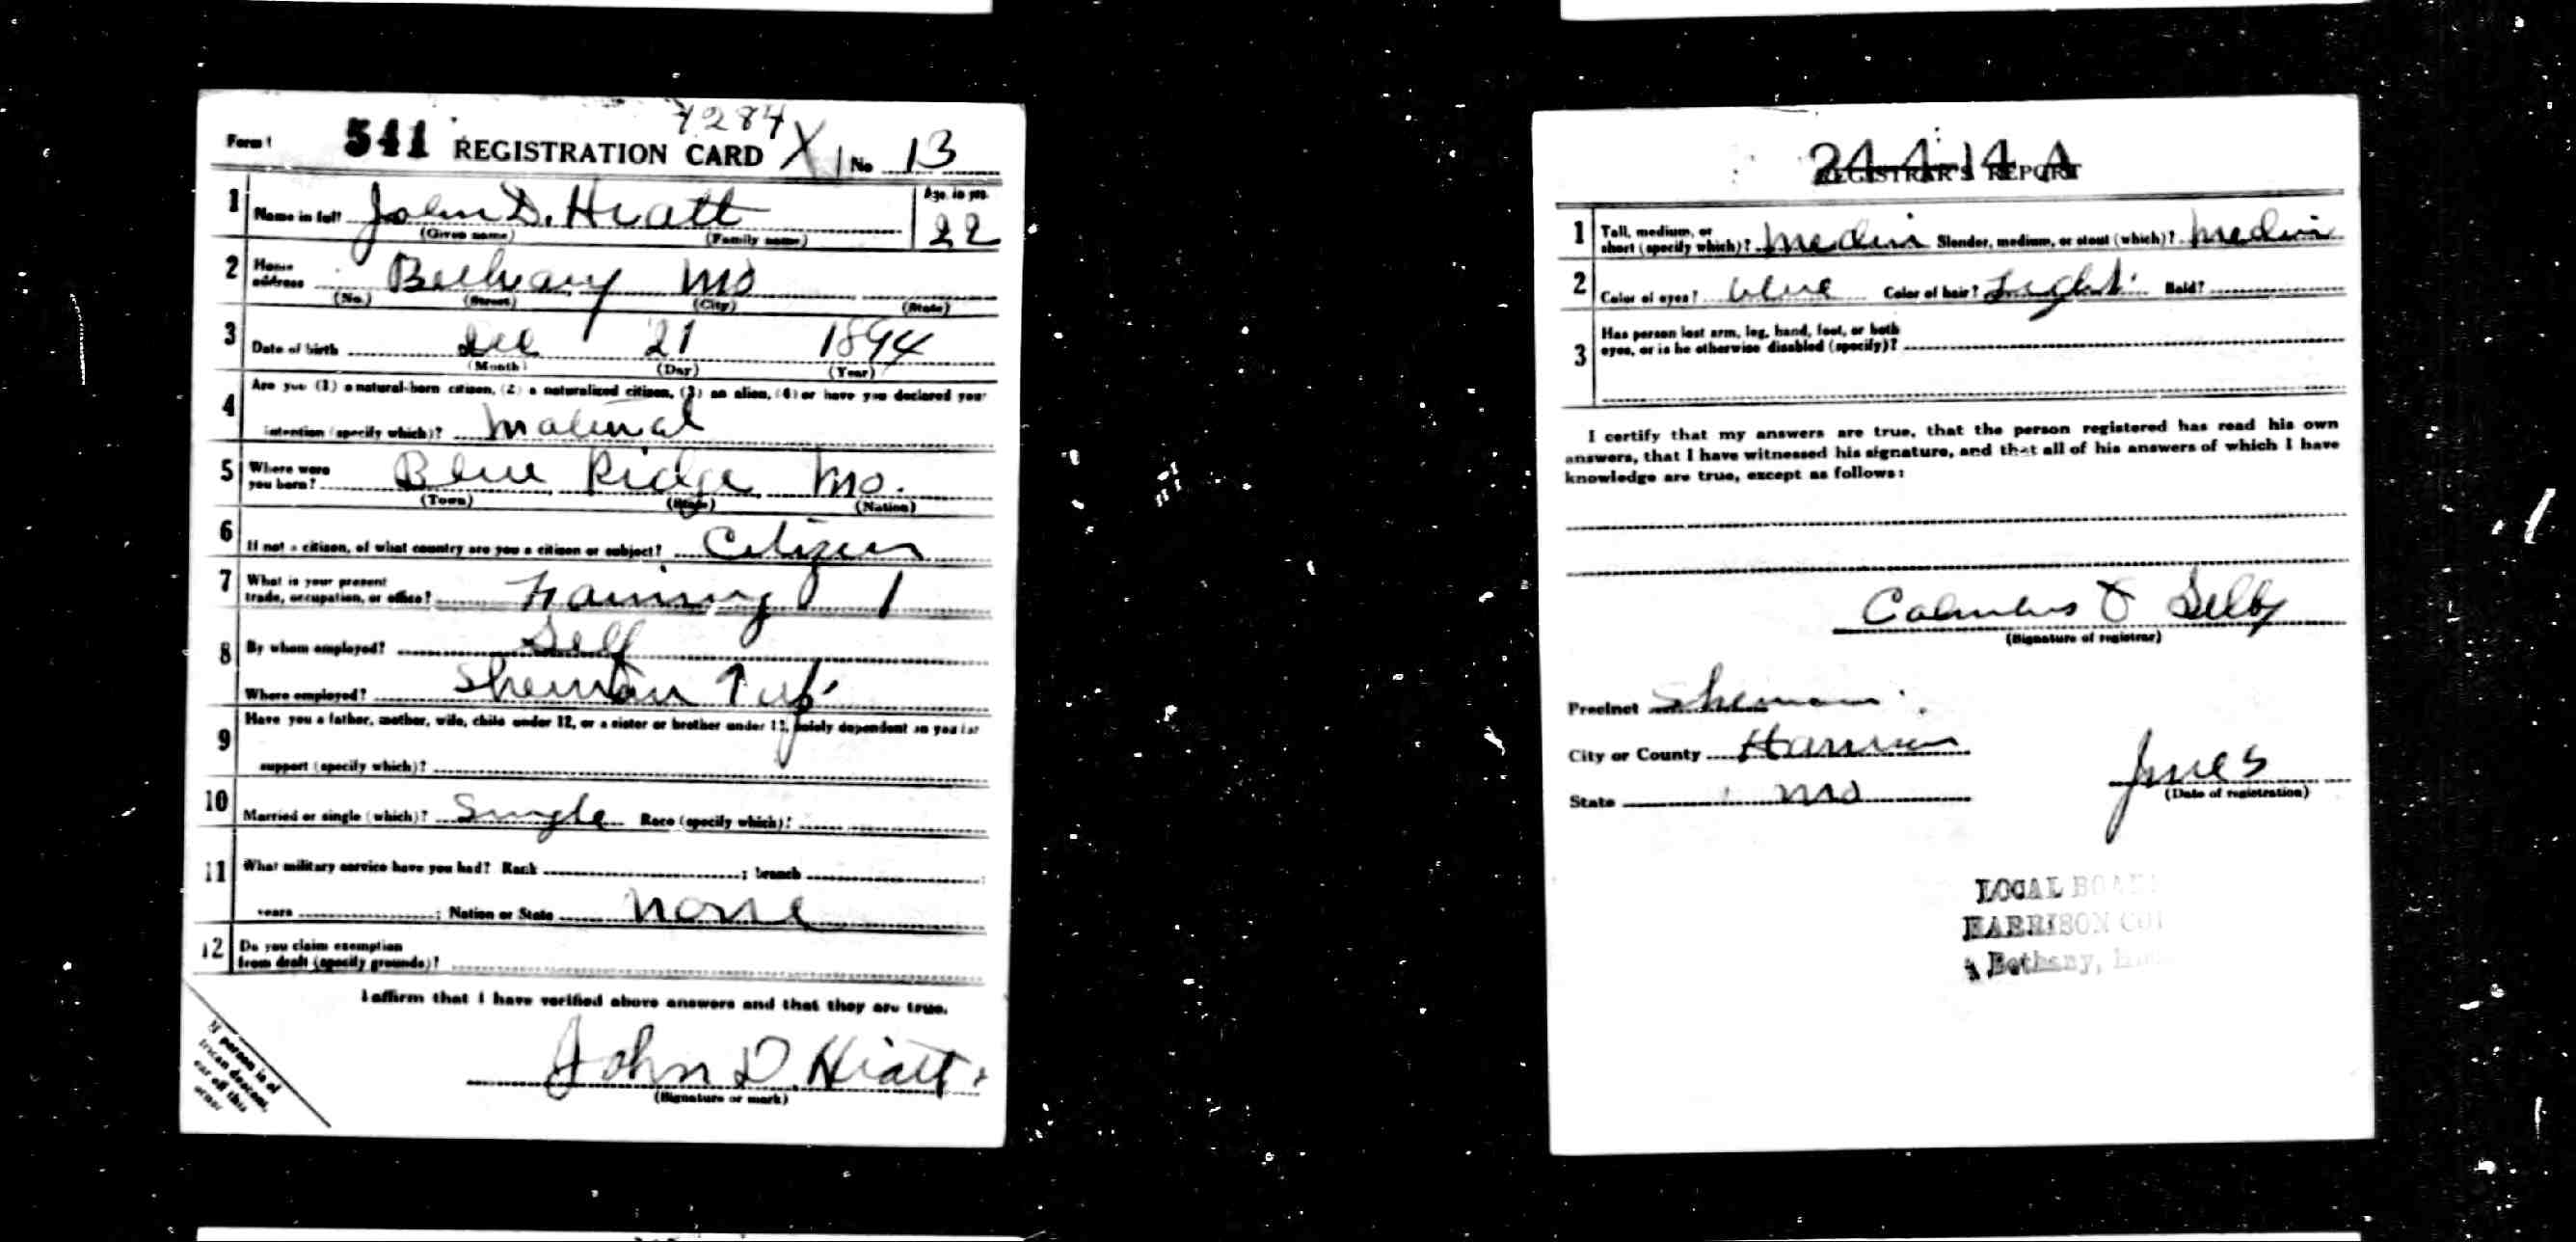 7284
Form 1 541 REGISTRATION CARD X No 13
1 Name in full John D. Hiatt Age, in yrs. 22
(Given name) (Family name)
2 Home address Bethany Mo
(No.) (Street) (City) (State)
3 Date of birth Dec 21 1894
(Month) (Day) (Year)
4 Are you (1) a natural-born citizen, (2) a naturalized citizen, (3) an alien, (4) or have you declared your
intention (specify which)?
5 Where were you born? Blue Ridge Mo.
(Town) (State) (Nation)
6 If not a citizen, of what country are you a citizen or subject? Citizen
7 What is your present
trade, occupation, or office? Farming 1
8 By whom employed? Self
Where employed? Sherman Twp.
9 Have you a father, mother, wife, child under 12, or a sister or brother under 12, solely dependent on you for
support (specify which)?
10 Married or single (which)? Single Race (specify which)?
11 What military service have you had? Rank ; branch ;
years ; Nation or State None
12 Do you claim exemption
from draft (specify grounds)?
I affirm that I have verified above answers and that they are true.
John D. Hiatt
(Signature or mark)
If person is of
African descent,
tear off this
corner
24-4-14 A
REGISTRAR'S REPORT
1 Tall, medium, or
short (specify which)? Medium Slender, medium, or stout (which)? Medium
2 Color of eyes? Blue Color of hair? Light Bald?
3 Has person lost arm, leg, hand, foot, or both
eyes, or is he otherwise disabled (specify)?
I certify that my answers are true, that the person registered has read his own
answers, that I have witnessed his signature, and that all of his answers of which I have
knowledge are true, except as follows:
Selby
(Signature of registrar)
Precinct Sherman
City or County Harrison
State Mo
June 5
(Date of registration)
LOCAL BOA
HARRISON COU
Bethany,